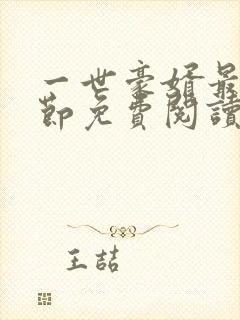 一世豪婿最
節免費閱讀
王喆